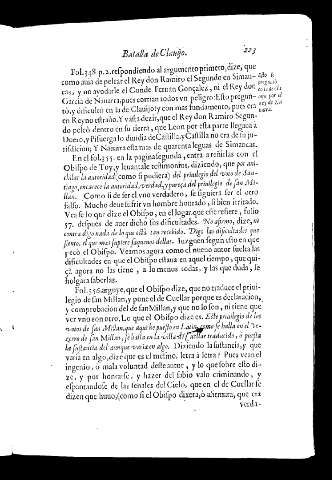 Batalla de Clauijo. 223
Fol.348 p.2. respondiendo al argumento primero, dize, que
como auia de pelear el Rey don Ramiro el Segundo en Siman-
cas, y no ayudarle el Conde Fernan Gonçalez, ni el Rey don
Garcia de Nauarra, pues corrian todos vn peligro: Esto pregun-
tó, y dificultò en la de Clauijo ty con mas fundamento, pues era
en Reyno estraño. Y vasta dezir, que el Rey don Ramiro Segun-
do peleò dentro en su tierra, que Leon por esta parte llegaua à
Duero, y Pisuerga lo diuidia de Castilla, y Castilla no era de su ju-
risdicion; y Nauarra està mas de quarenta leguas de Simancas.
En el fol.355. en la pagina segunda, entra a reñirlas con el
Obispo de Tuy, y leuantale testimonios, diziendo, que por
la autoridad, (como si pudiera) del priuilegio del voto de San-
tiago, encarece la autoridad, verdad, y pureza del priuilegio de san Mi-
llan. Como si de ser el vno verdadero, se siguiera ser el otro
falso. Mucho deue sufrir vn hombre honrado, si bien irritado.
Vea se lo que dize el Obispo, en el lugar que este refiere, folio
57. despues de auer dicho sus dificultades. No quiero, dize, ni
contradigo nada de lo que està tan recebido. Digo las dificultades que
siento, el que mas supiere saquenos dellas. Iuzguen segun esto en que
pecò el Obispo. Veamos agora como el nueuo autor suelta las
dificultades en que el Obispo estaua en aquel tiempo, que qui-
çà agora no las tiene, a lo menos todas, y las que duda, se
holgara saberlas.
Fol.356. arguye, que el Obispo dize, que no traduce el priui-
legio de san Millan, y pone el de Cuellar porque es declaracion,
y comprobacion del de san Millan, y que no lo son, ni tiene que
ver vno con otro. Lo que el Obispo dize es. Este priuilegio de los
votos de san Millan, que aqui he puesto en Latin, como se halla en el Be-
zerro de san Millan, se halla en la villa de Cuellar traducido, o puesta
la sustancia del aunque varia en algo. Diziendo la sustancia, y que
varia en algo, dize que es el mesmo, letra à letra? Pues vean el
ingenio, ò mala voluntad deste autor, y lo que sobre esto di-
ze, y por honrarse, y hazer del sabio valo criminando, y
espantandose de las señales del Cielo, que en el de Cuellar se
dizen que huuo, (como si el Obispo dixera, ò añentara, que era
verda-